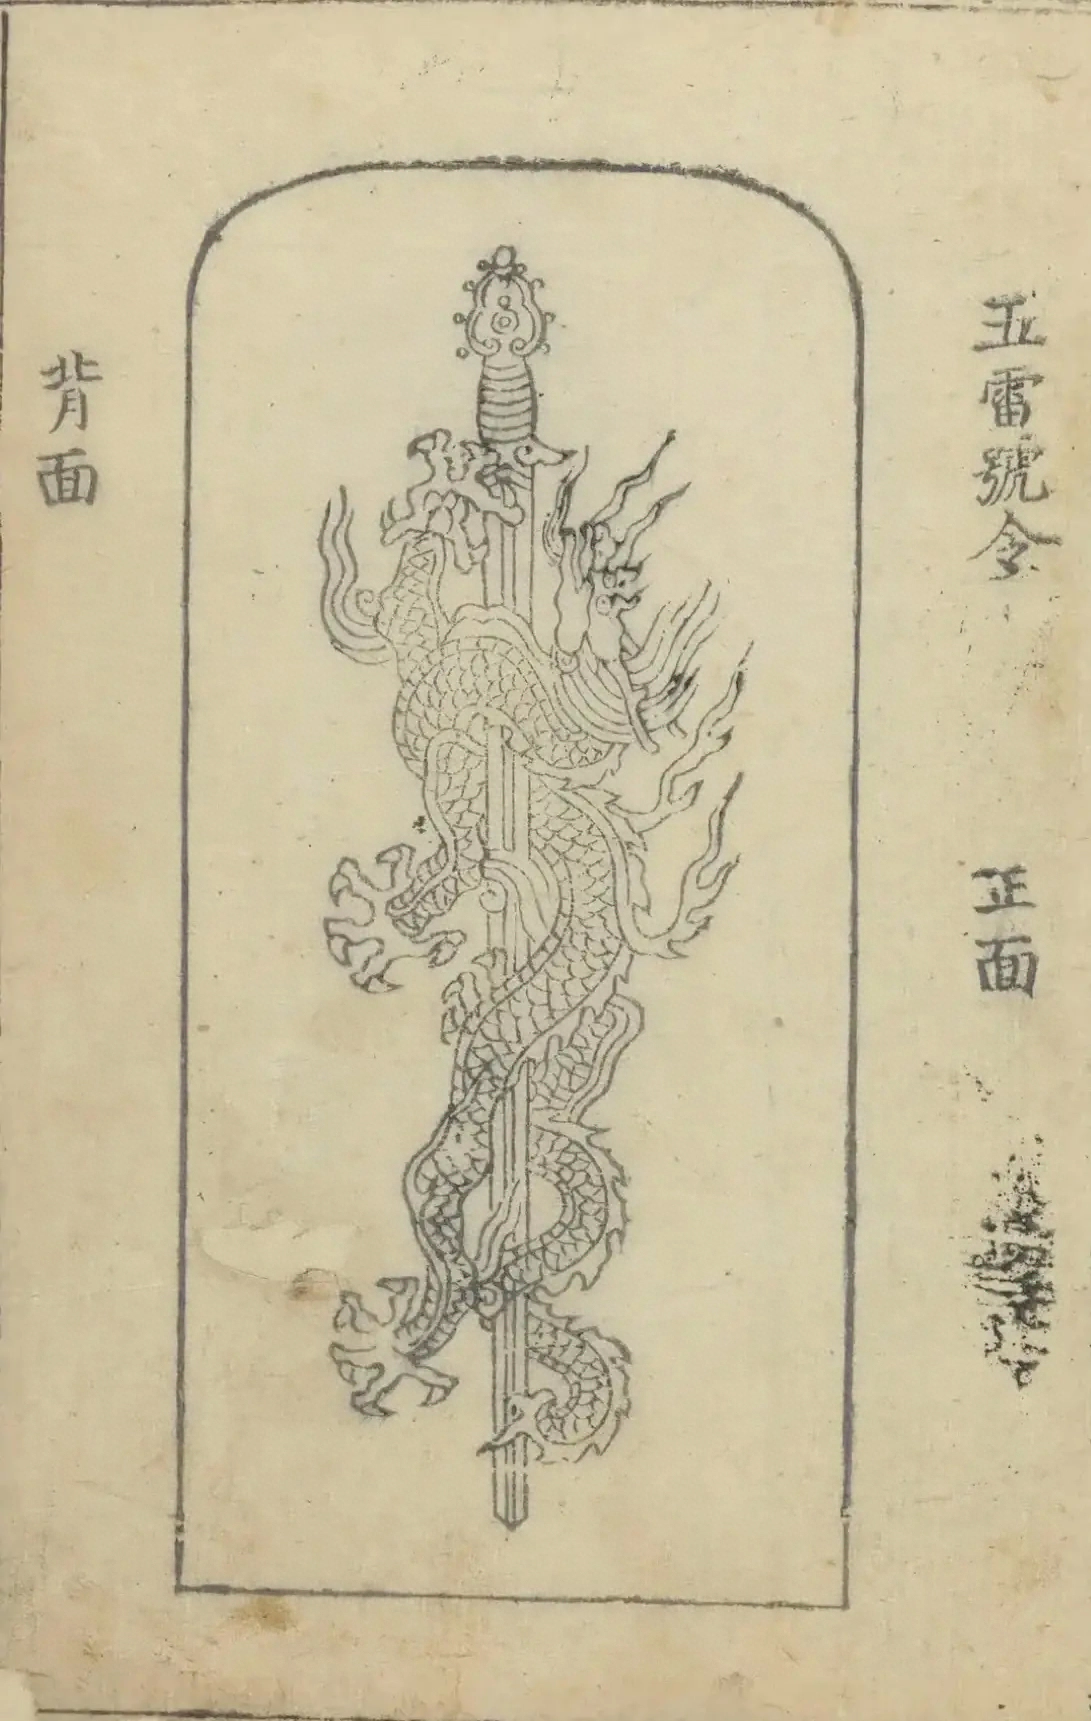 五雷號令 正面
背面